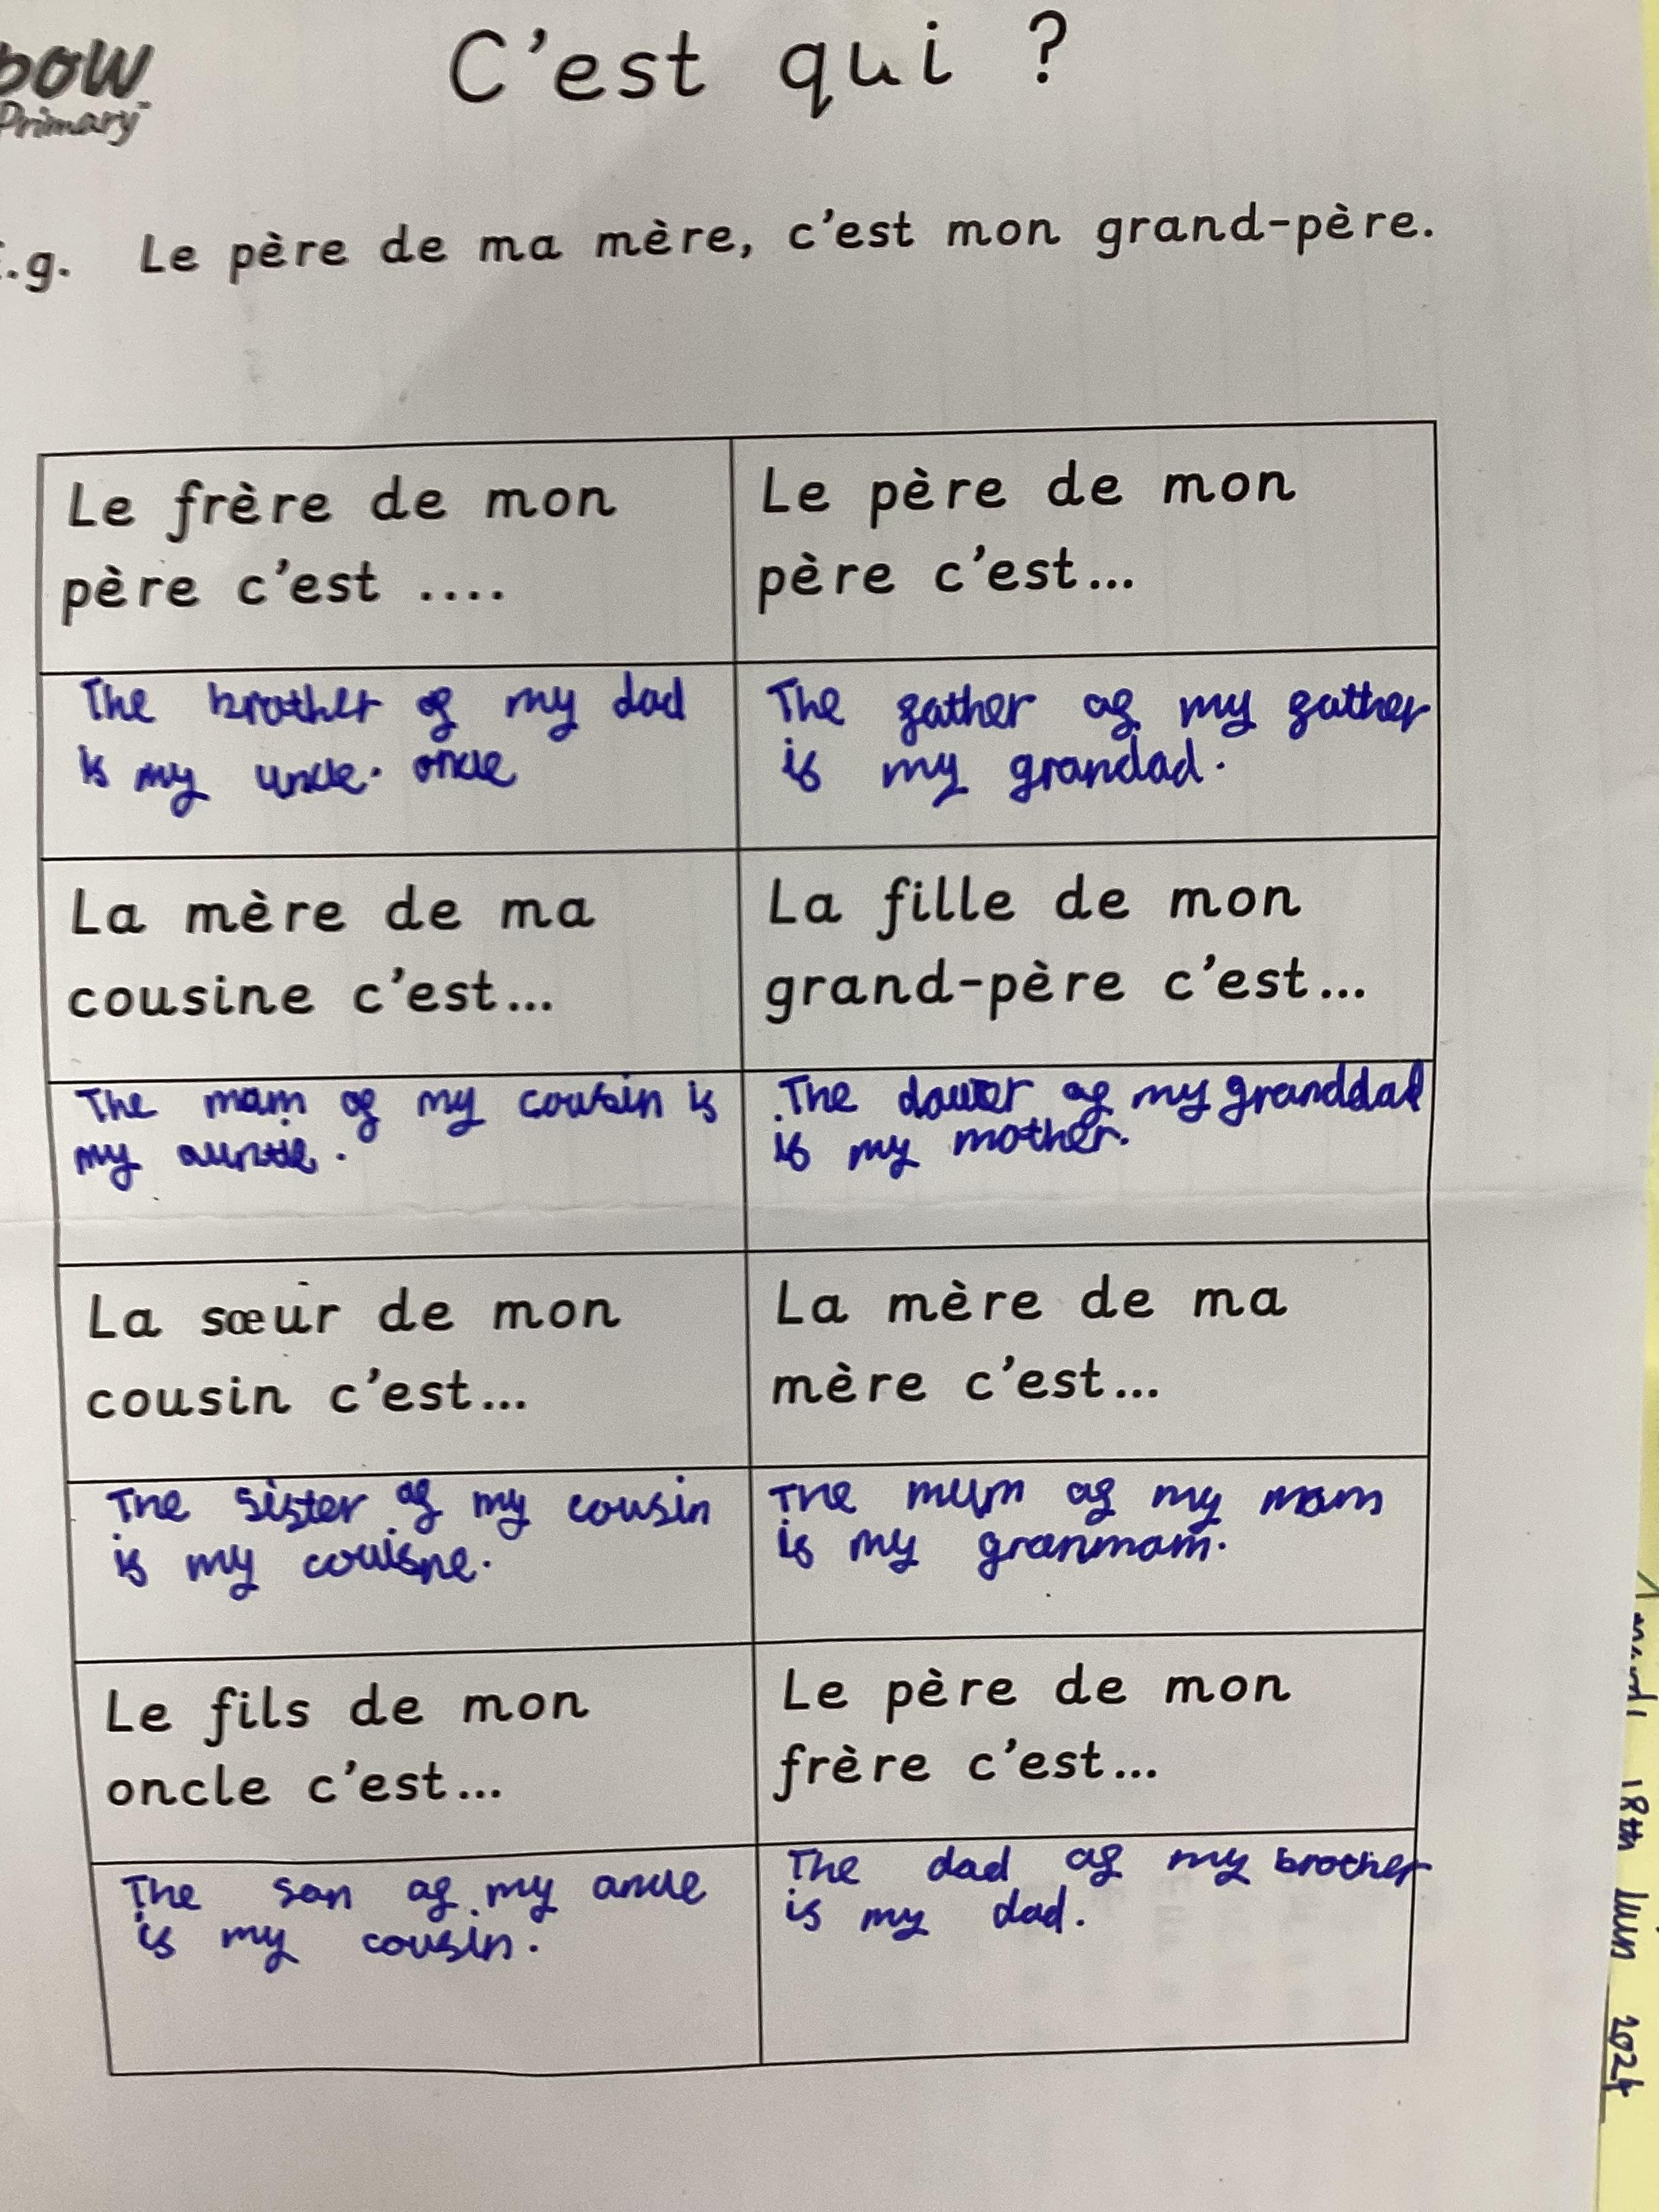 bow
Primary
C'est qui ?
E.g. Le père de ma mère, c'est mon grand-père.
Le frère de mon
père c'est ....
Le père de mon
père c'est...
The brother of my dad
is my uncle. oncle
The father of my father
is my grandad.
La mère de ma
cousine c'est...
La fille de mon
grand-père c'est...
The mam of my cousin is
my auntie.
The dauter of my granddad
is my mother.
La sœur de mon
cousin c'est...
La mère de ma
mère c'est...
The sister of my cousin
is my couisne.
The mum of my mam
is my granmam.
Le fils de mon
oncle c'est...
Le père de mon
frère c'est...
The son of my oncle
is my cousin.
The dad of my brother
is my dad.
18th Juin 2024